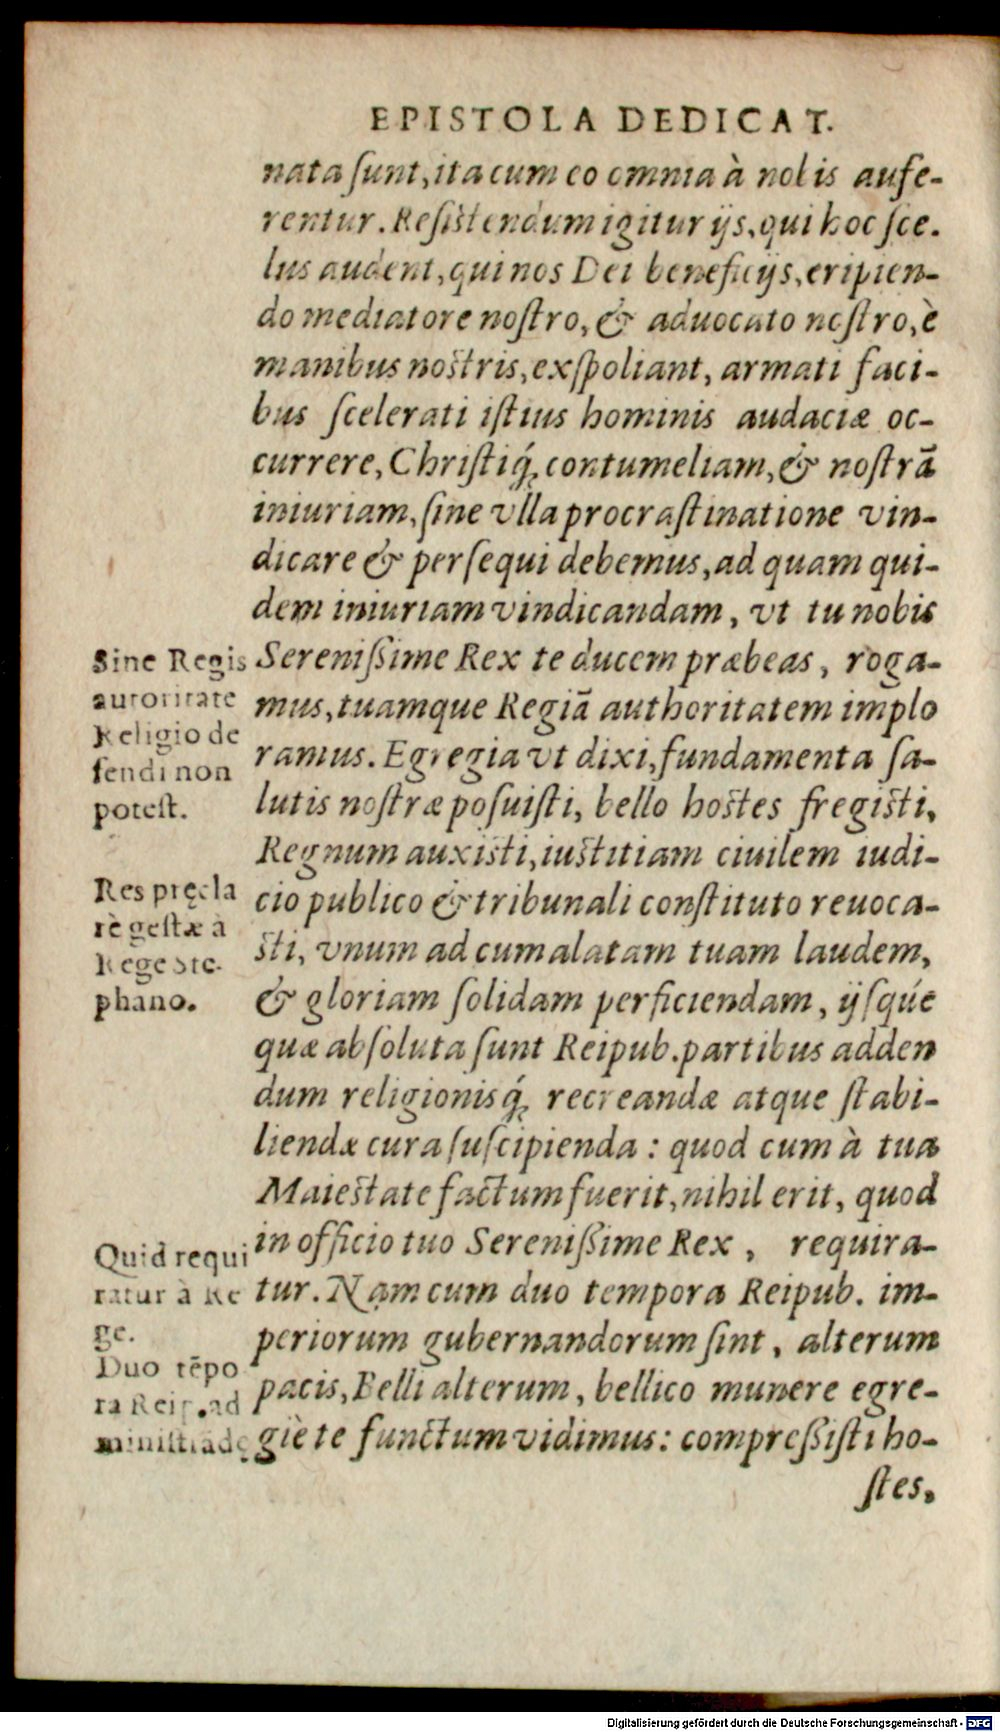 EPISTOLA DEDICAT.
nata ſunt, ita cum eo omnia à nobis aufe-
rentur. Reſiſtendum igitur ijs, qui hoc ſce-
lus audent, qui nos Dei beneficijs, eripien-
do mediatore noſtro, & aduocato noſtro, è
manibus noſtris, exſpoliant, armati faci-
bus ſcelerati iſtius hominis audaciæ oc-
currere, Chriſtiq́; contumeliam, & noſtrā
iniuriam, ſine vlla procraſtinatione vin-
dicare & perſequi debemus, ad quam qui-
dem iniuriam vindicandam, vt tu nobis
Sereniſſime Rex te ducem præbeas, roga-
mus, tuamque Regiā authoritatem implo
ramus. Egregia vt dixi, fundamenta ſa-
lutis noſtræ poſuiſti, bello hoſtes fregiſti,
Regnum auxiſti, iuſtitiam ciuilem iudi-
cio publico & tribunali conſtituto reuoca-
ſti, vnum ad cumalatam tuam laudem,
& gloriam ſolidam perficiendam, ijſqúe
quæ abſoluta ſunt Reipub. partibus adden
dum religionisq́; recreandæ atque ſtabi-
liendæ cura ſuſcipienda: quod cum à tua
Maieſtate factum fuerit, nihil erit, quod
in officio tuo Sereniſſime Rex, requira-
tur. Nam cum duo tempora Reipub. im-
periorum gubernandorum ſint, alterum
pacis, Belli alterum, bellico munere egre-
giè te functum vidimus: compreſſiſti ho-
ſtes,
Sine Regis
autoritate
Religio de
fendi non
poteſt.
Res pręcla
rè geſtæ à
Rege Ste-
phano.
Quid requi
ratur à Re
ge.
Duo tēpo
ra Reip. ad
miniſtrādę
Digitalisierung gefördert durch die Deutsche Forschungsgemeinschaft - DFG